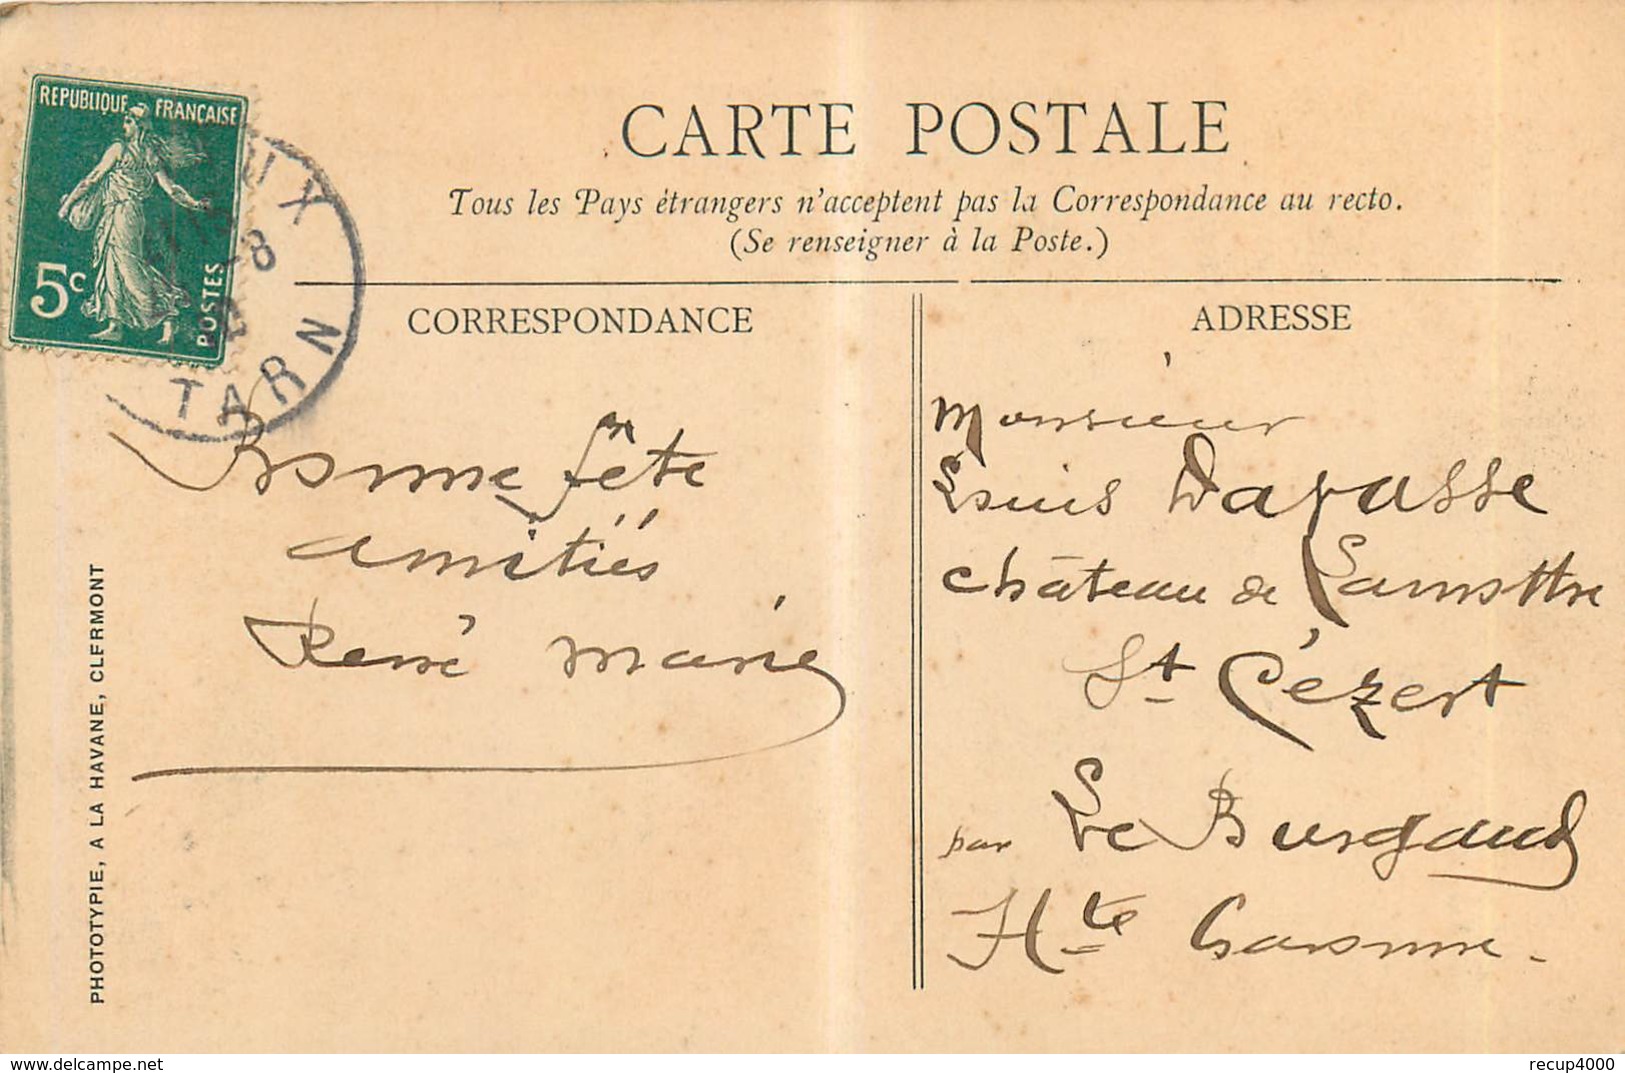 REPUBLIQUE FRANÇAISE
5c
POSTES
UX
-8
TARN
CARTE POSTALE
Tous les Pays étrangers n'acceptent pas la Correspondance au recto.
(Se renseigner à la Poste.)
CORRESPONDANCE
Bonne fête
amitiés
René Marie
ADRESSE
Monsieur
Louis
château de
St Cézert
par Le Burgaud
Hte Garonne.
PHOTOTYPIE, A LA HAVANE, CLERMONT
delcampe.net
recup4000